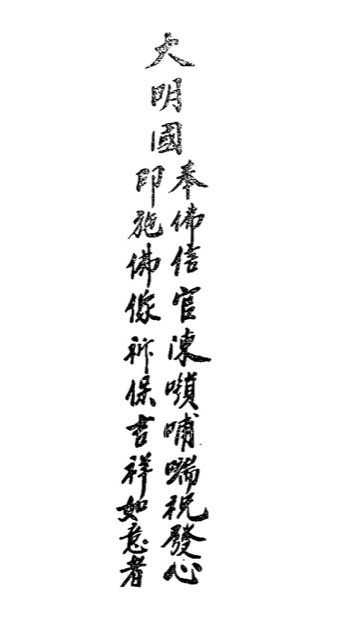 大明國
奉佛信官湅嗩哺喘祝發心
印施佛像祈保吉祥如意者